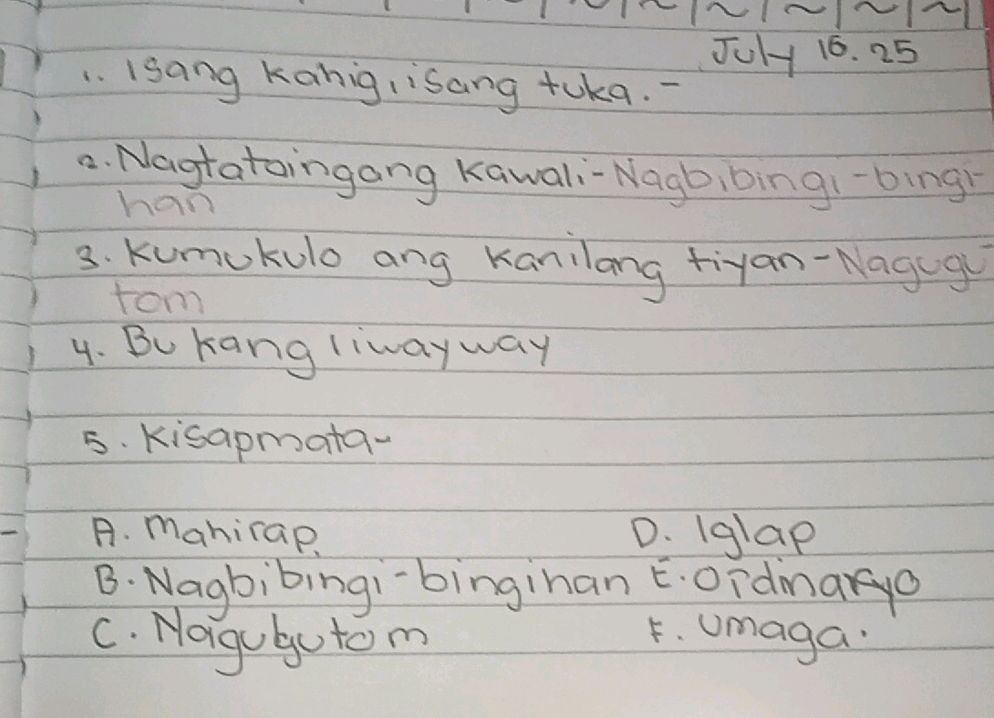 July 16. 25
1. Isang kahig, isang tuka. -
2. Nagtataingang kawali - Nagbibingi-bingi-
han
3. Kumukulo ang kanilang tiyan - Nagugu-
tom
4. Bukang liwayway
5. Kisapmata-
A. Mahirap. D. Iglap
B. Nagbibingi-bingihan E. Ordinaryo
C. Nagugutom F. Umaga.